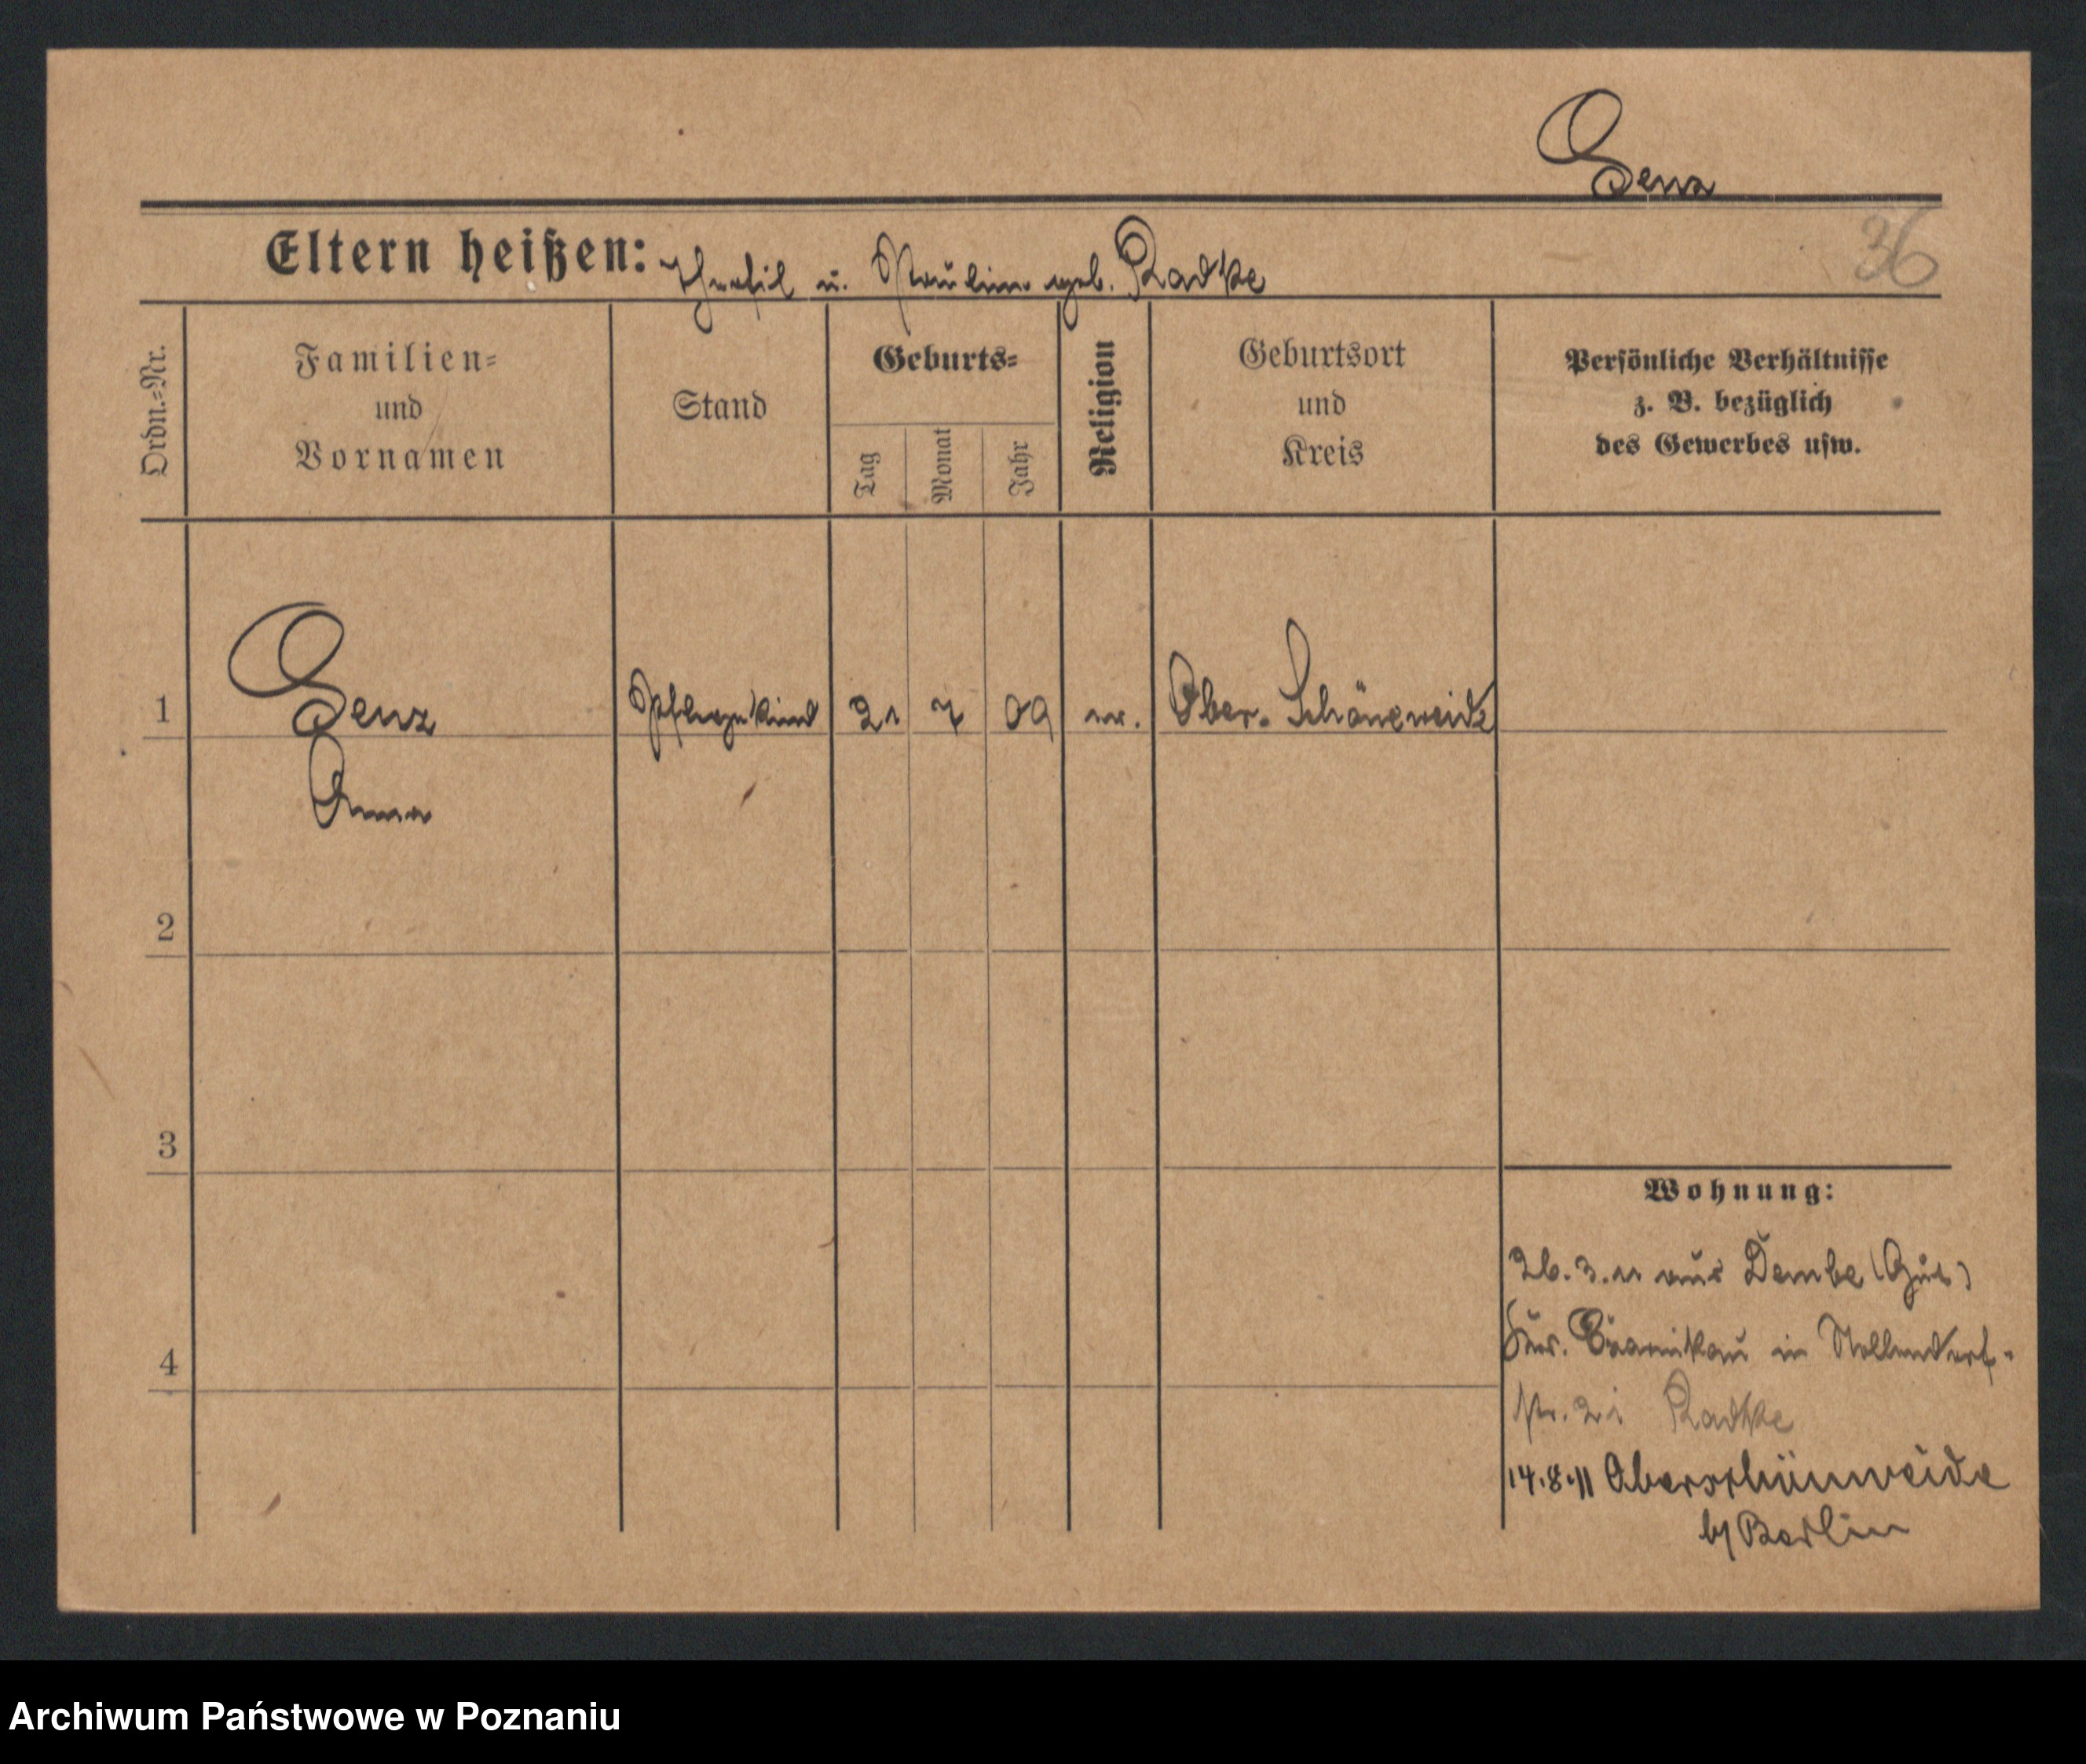 Genz
Eltern heißen: Theofil u. Pauline geb. Radke
36
Ordn.-Nr.
Familien-
und
Vornamen
Stand
Geburts-
Tag
Monat
Jahr
Religion
Geburtsort
und
Kreis
Persönliche Verhältnisse
z. B. bezüglich
des Gewerbes usw.
1
Genz
Anna
Pflegekind
21
7
09
Ober-Schöneweide
2
3
4
Wohnung:
26.3.11 aus Dembe (Gut)
Czarnikau in Nollendorf-
str. 21 Radke
14.8.11 Oberschönweide
b/ Berlin
Archiwum Państwowe w Poznaniu